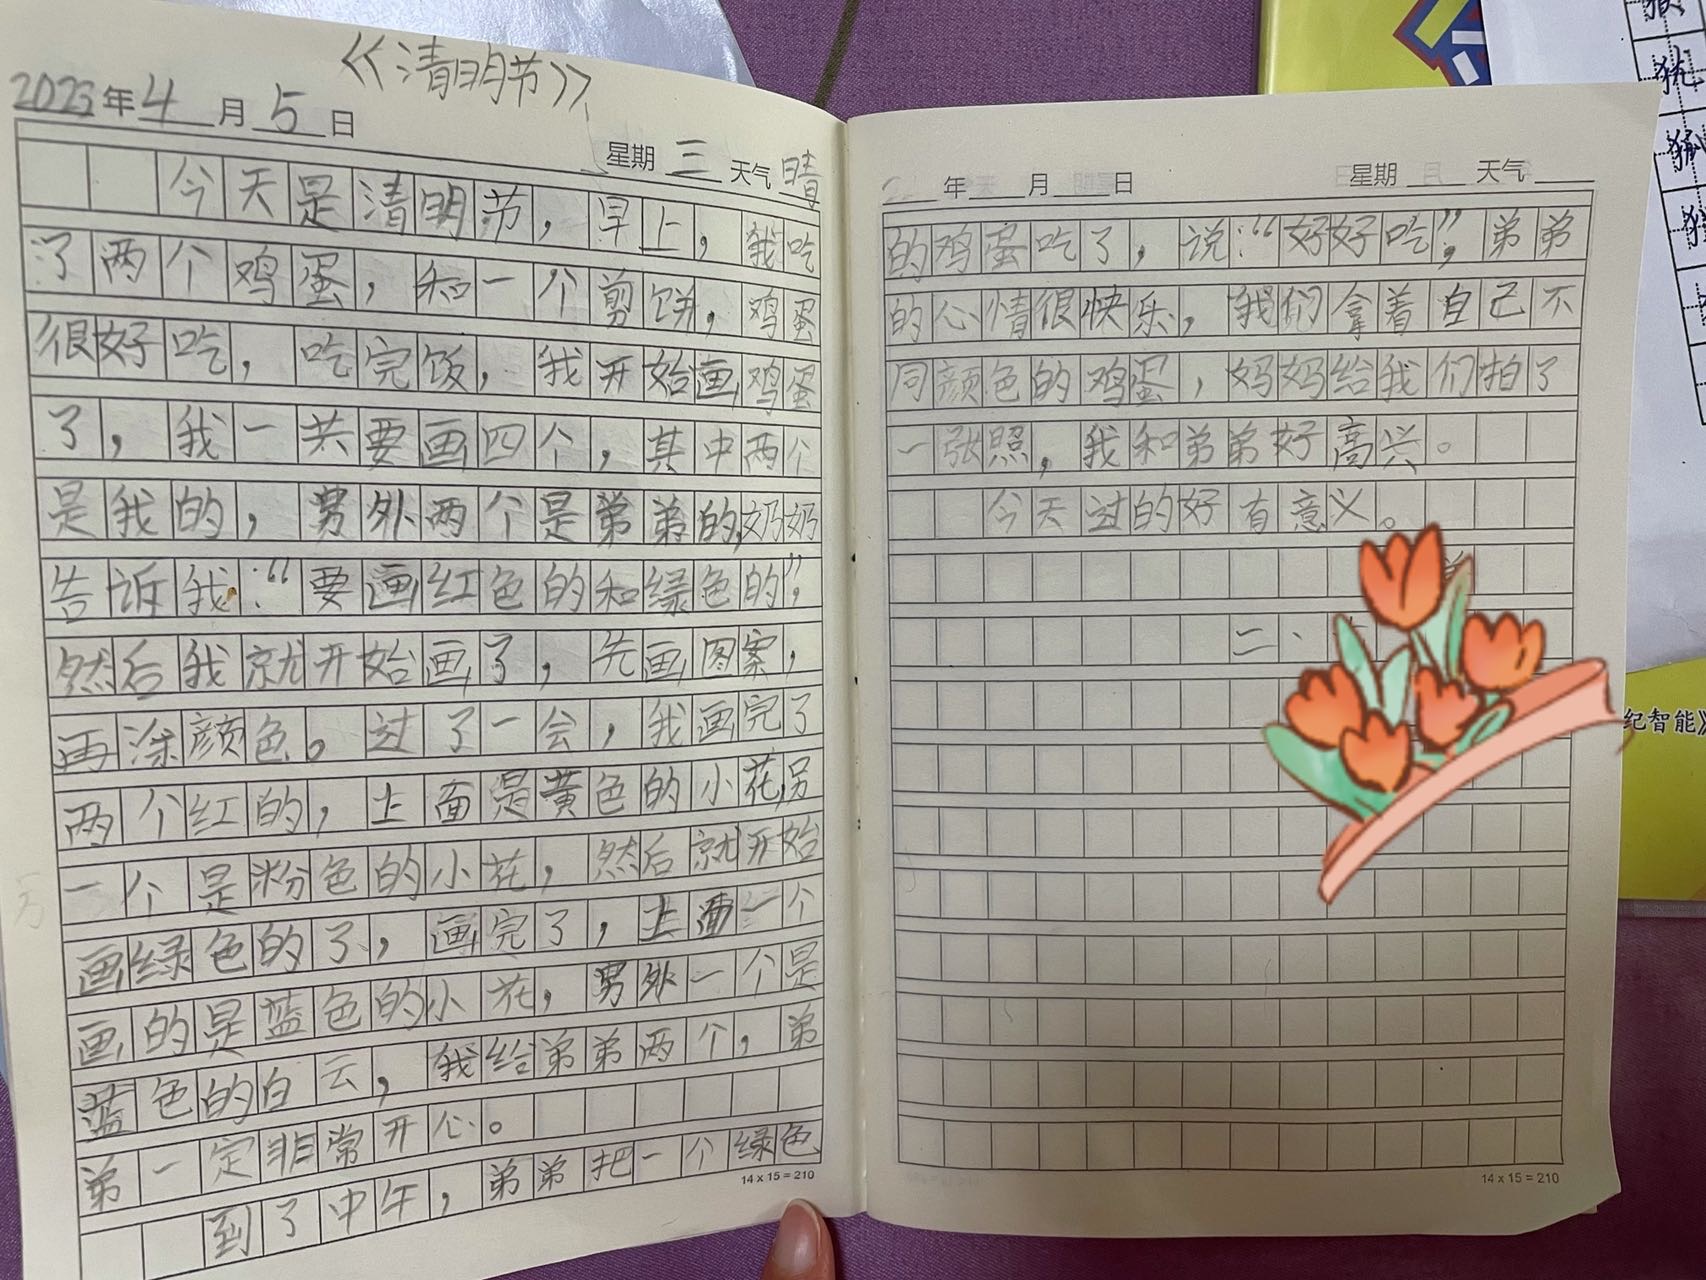 《清明节》
2023年4月5日
星期三 天气晴
今天是清明节，早上，我吃
了两个鸡蛋，和一个剪饼，鸡蛋
很好吃，吃完饭，我开始画鸡蛋
了，我一共要画四个，其中两个
是我的，另外两个是弟弟的，奶奶
告诉我：“要画红色的和绿色的”，
然后我就开始画了，先画图案，
再涂颜色。过了一会，我画完了
两个红的，上面是黄色的小花，另
一个是粉色的小花，然后就开始
画绿色的了，画完了，上面一个
画的是蓝色的小花，另外一个是
蓝色的白云，我给弟弟两个，弟
弟一定非常开心。
到了中午，弟弟把一个绿色
14×15=210
年 月 日 星期 天气
的鸡蛋吃了，说：“好好吃”，弟弟
的心情很快乐，我们拿着自己不
同颜色的鸡蛋，妈妈给我们拍了
一张照，我和弟弟好高兴。
今天过的好有意义。
二、
14×15=210
纪智能》